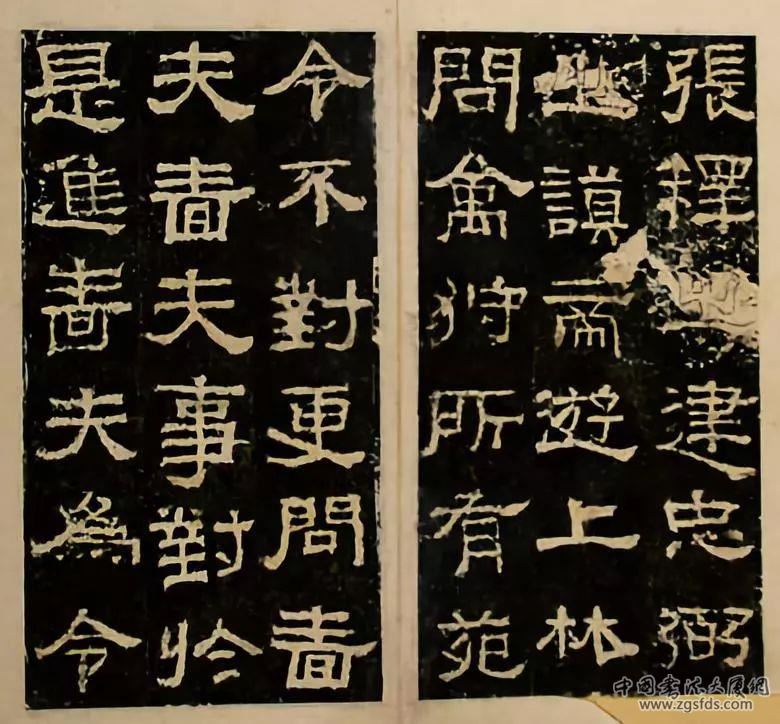 張釋之建忠弼
之謨帝遊上林
問禽狩所有苑
令不對更問嗇
夫嗇夫事對於
是進嗇夫為令
中國書法大厦網
www.zgsfds.com